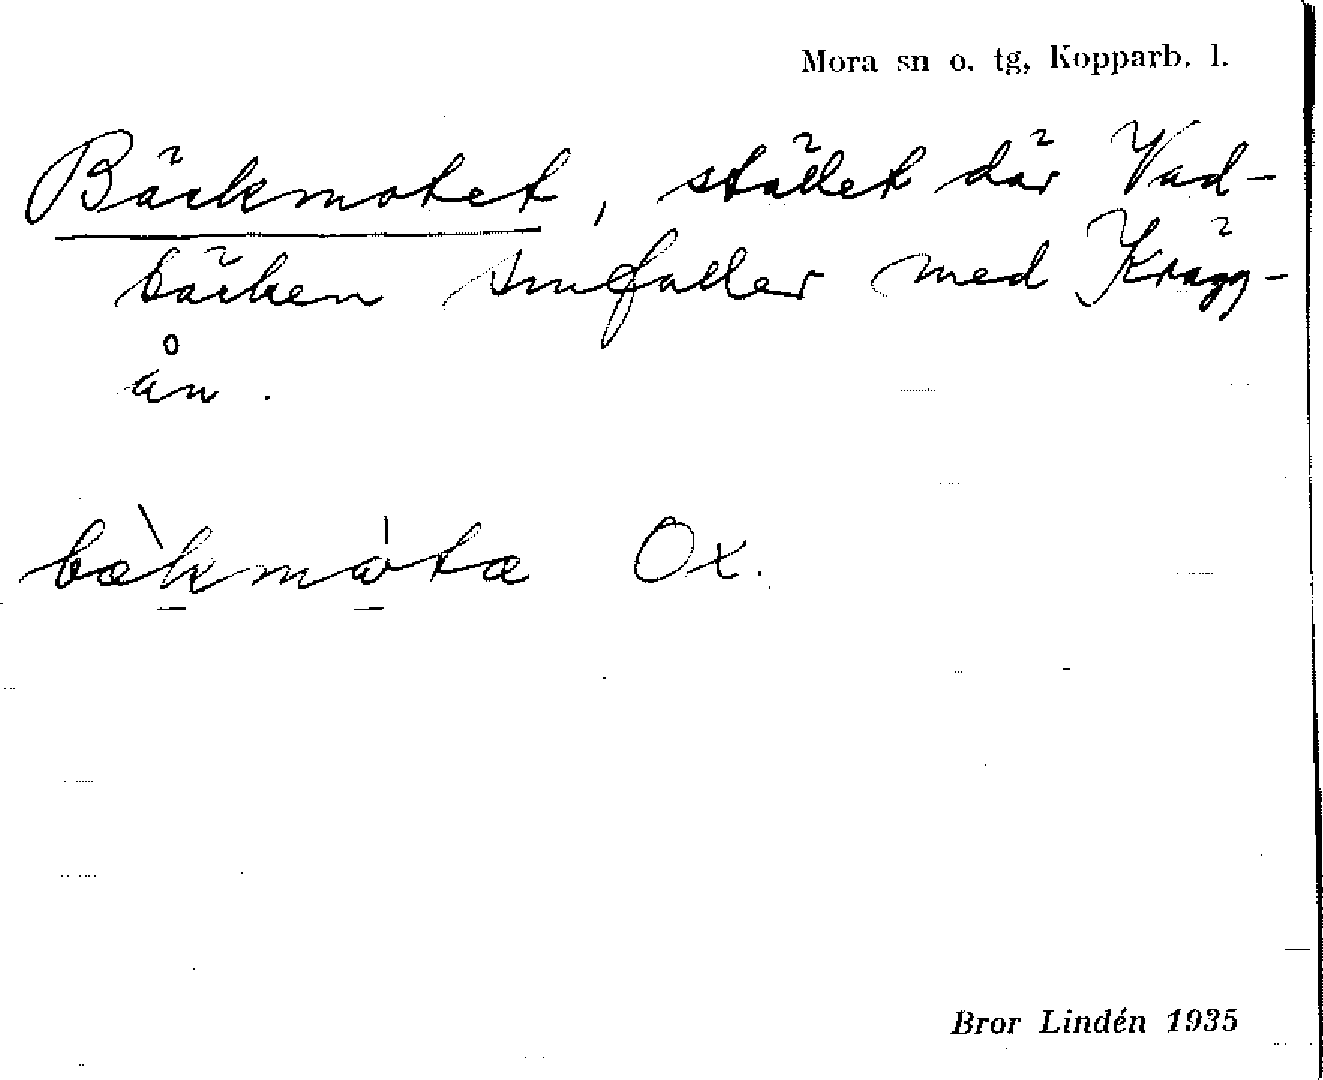 Mora sn o. tg, Kopparb. l.
Bäckmotet, stället där Vad-
bäcken smfaller med Krägg-
ån.
bæ̀kmòta Ox.
Bror Lindén 1935